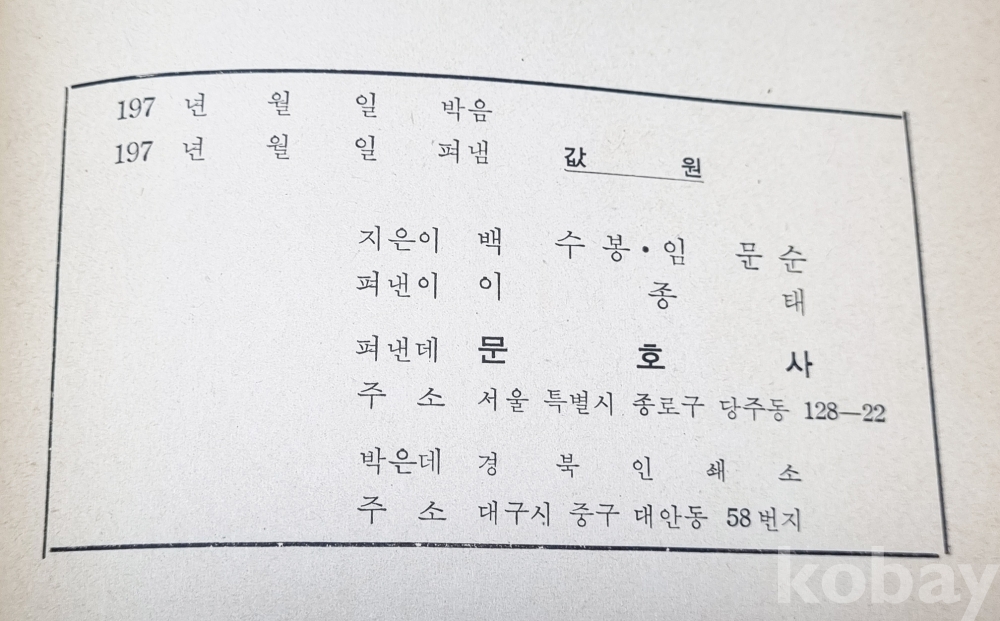 197 년 월 일 박음
197 년 월 일 펴냄 값 원
지은이 백 수 봉 · 임 문 순
펴낸이 이 종 태
펴낸데 문 호 사
주 소 서울 특별시 종로구 당주동 128—22
박은데 경 북 인 쇄 소
주 소 대구시 중구 대안동 58번지
kobay